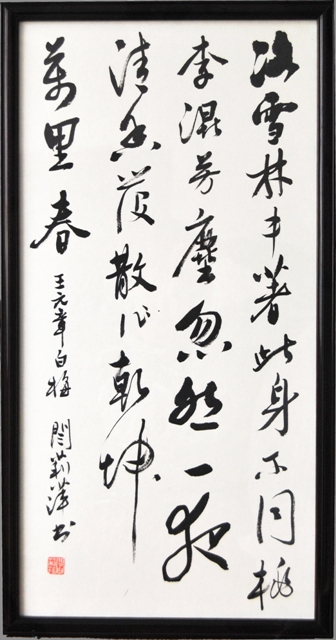 冰雪林中著此身不同桃
李混芳塵忽然一夜
清香發散作乾坤
萬里春
王元章白梅
閆莉萍书